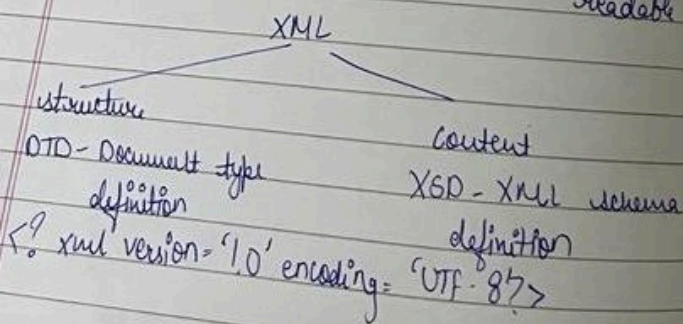 readable
XML
structure
Content
DTD - Document type
definition
XSD - XML schema
definition
<? xml version = '1.0' encoding = 'UTF-8'?>